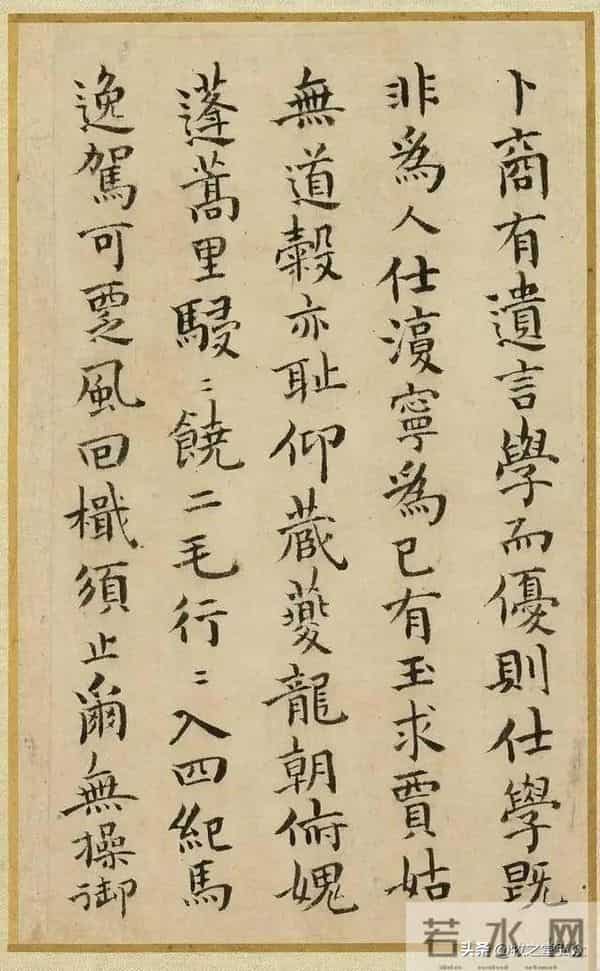 卜商有遺言學而優則仕學既
非爲人仕復寧爲己有玉求賈姑
無道穀亦耻仰蔵夔龍朝俯媿
蓬蒿里駸〻饒二毛行〻入四紀馬
逸駕可覂風回檝須止爾無操御
若水网
头条